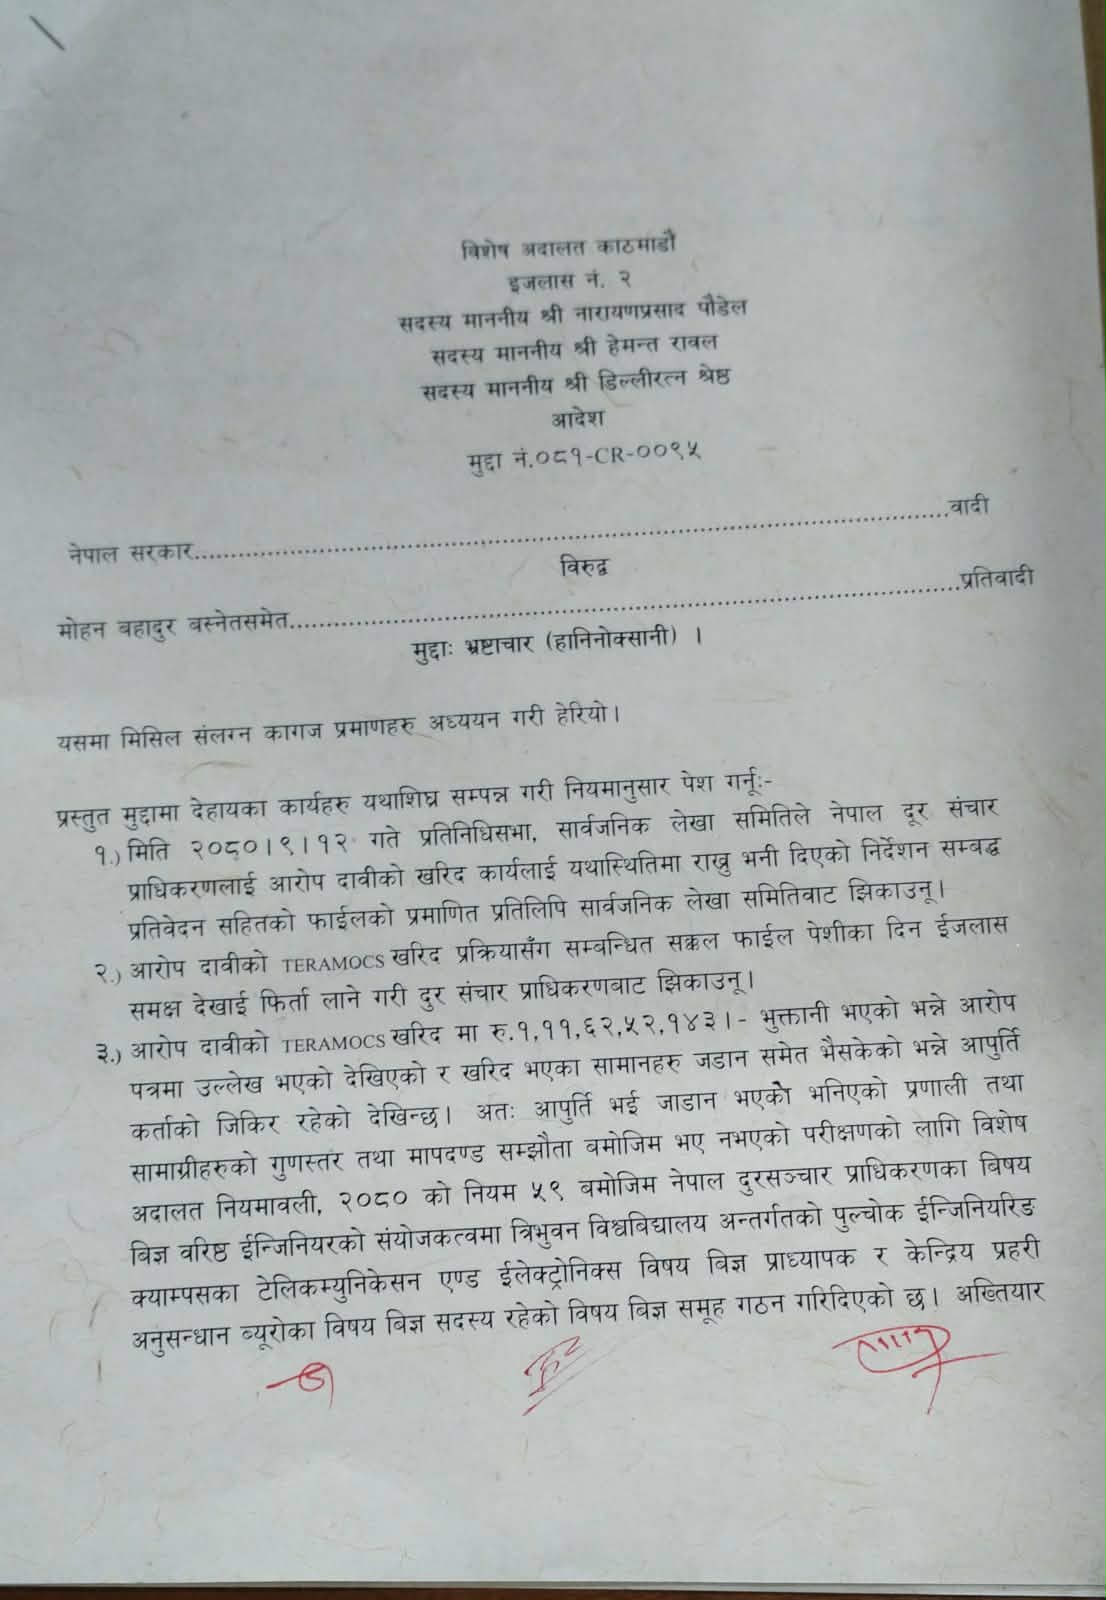 विशेष अदालत काठमाडौं
इजलास नं. २
सदस्य माननीय श्री नारायणप्रसाद पौडेल
सदस्य माननीय श्री हेमन्त रावल
सदस्य माननीय श्री डिल्लीरत्न श्रेष्ठ
आदेश
मुद्दा नं.०८१-CR-००९५
नेपाल सरकार......................................................................वादी
विरुद्व
मोहन बहादुर बस्नेतसमेत......................................................................प्रतिवादी
मुद्दाः भ्रष्टाचार (हानिनोक्सानी) ।
यसमा मिसिल संलग्न कागज प्रमाणहरु अध्ययन गरी हेरियो।
प्रस्तुत मुद्दामा देहायका कार्यहरु यथाशिघ्र सम्पन्न गरी नियमानुसार पेश गर्नूः-
१.) मिति २०८०।९।१२ गते प्रतिनिधिसभा, सार्वजनिक लेखा समितिले नेपाल दूर संचार
प्राधिकरणलाई आरोप दावीको खरिद कार्यलाई यथास्थितिमा राख्नु भनी दिएको निर्देशन सम्बद्ध
प्रतिवेदन सहितको फाईलको प्रमाणित प्रतिलिपि सार्वजनिक लेखा समितिवाट झिकाउनू।
२.) आरोप दावीको TERAMOCS खरिद प्रक्रियासँग सम्बन्धित सक्कल फाईल पेशीका दिन ईजलास
समक्ष देखाई फिर्ता लाने गरी दुर संचार प्राधिकरणबाट झिकाउनू।
३.) आरोप दावीको TERAMOCS खरिद मा रु.१,११,६२,५२,१४३।- भुक्तानी भएको भन्ने आरोप
पत्रमा उल्लेख भएको देखिएको र खरिद भएका सामानहरु जडान समेत भैसकेको भन्ने आपुर्ति
कर्ताको जिकिर रहेको देखिन्छ। अतः आपुर्ति भई जाडान भएको भनिएको प्रणाली तथा
सामाग्रीहरुको गुणस्तर तथा मापदण्ड सम्झौता बमोजिम भए नभएको परीक्षणको लागि विशेष
अदालत नियमावली, २०८० को नियम ५९ बमोजिम नेपाल दुरसञ्चार प्राधिकरणका बिषय
बिज्ञ वरिष्ठ ईन्जिनियरको संयोजकत्वमा त्रिभुवन विश्वबिद्यालय अन्तर्गतको पुल्चोक ईन्जिनियरिङ
क्याम्पसका टेलिकम्युनिकेसन एण्ड ईलेक्ट्रोनिक्स विषय बिज्ञ प्राध्यापक र केन्द्रिय प्रहरी
अनुसन्धान ब्यूरोका विषय बिज्ञ सदस्य रहेको विषय बिज्ञ समूह गठन गरिदिएको छ। अख्तियार